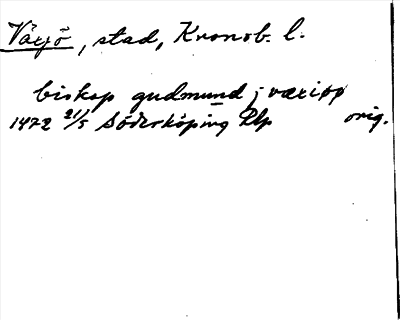 Växjö, stad, Kronob. l.
biskop gudmund j væxiøø
1472 21/5 Söderköping Rlp orig.